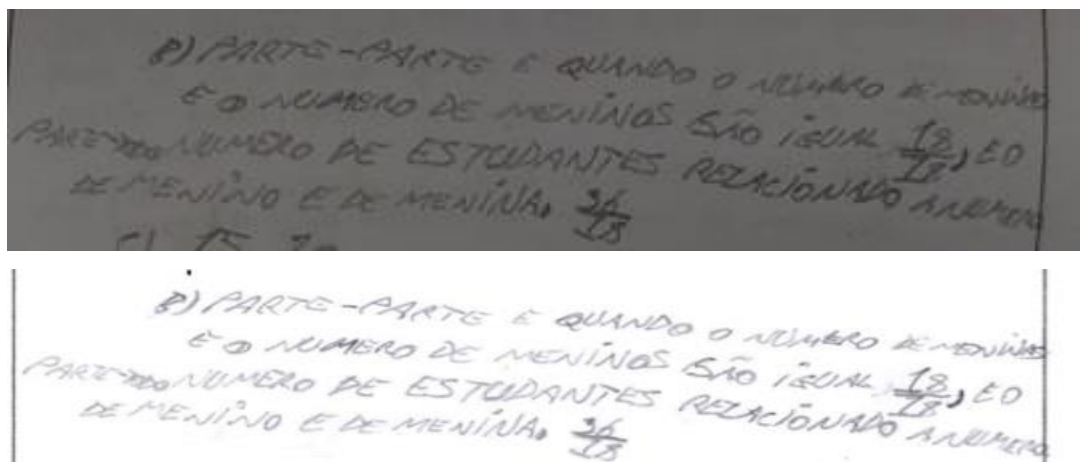 B) PARTE-PARTE E QUANDO O NÚMERO DE MENINAS
E O NUMERO DE MENINOS SÃO IGUAL 18/18, E O
PARTE-TODO NUMERO DE ESTUDANTES RELACIONADO A NUMERO
DE MENINO E DE MENINA. 36/18
C) 15
B) PARTE-PARTE E QUANDO O NÚMERO DE MENINAS
E O NUMERO DE MENINOS SÃO IGUAL 18/18, E O
PARTE-TODO NUMERO DE ESTUDANTES RELACIONADO A NUMERO
DE MENINO E DE MENINA. 36/18